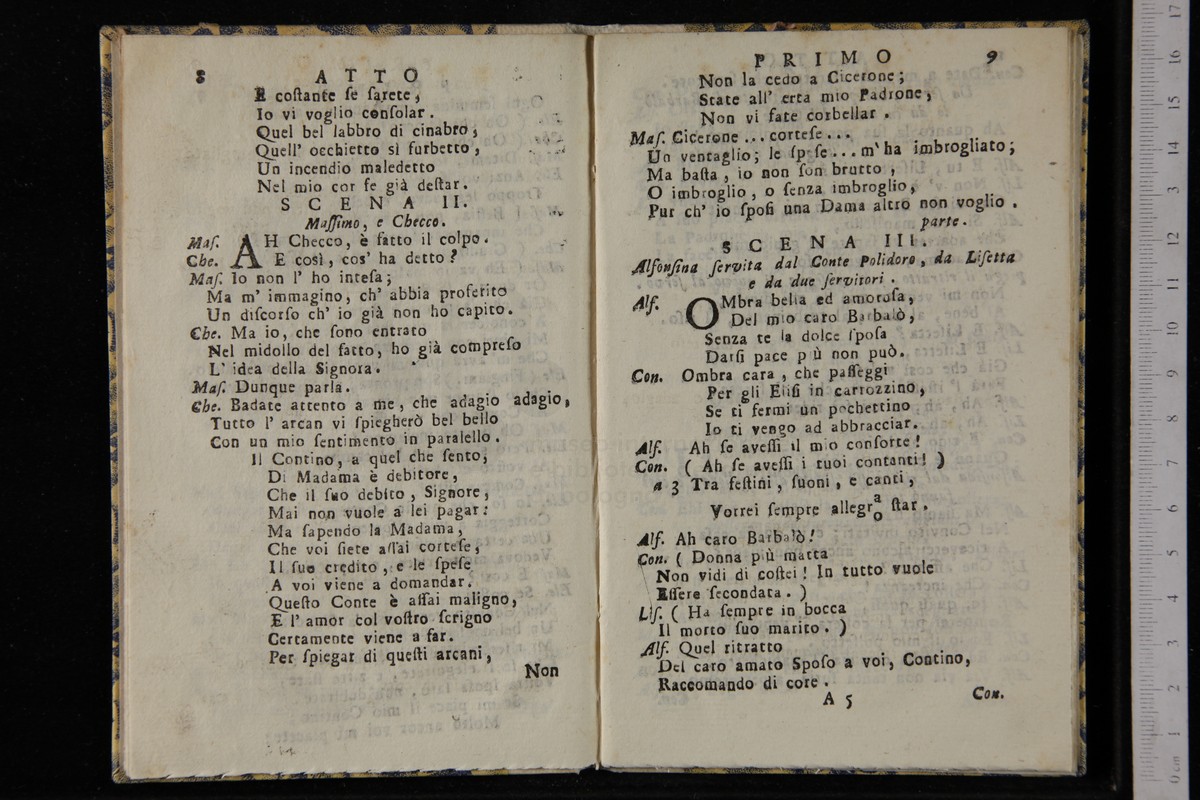 8 ATTO
E coſtante ſe ſarete,
Io vi voglio conſolar.
Quel bel labbro di cinabro,
Quell' occhietto sì furbetto,
Un incendio maledetto
Nel mio cor fe già deſtar.
SCENA II.
Maſſimo, e Checco.
Maſ. AH Checco, è fatto il colpo.
Che. E così, cos' ha detto?
Maſ. Io non l' ho inteſa;
Ma m' immagino, ch' abbia proferito
Un diſcorſo ch' io già non ho capito.
Che. Ma io, che ſono entrato
Nel midollo del fatto, ho già compreſo
L' idea della Signora.
Maſ. Dunque parla.
Che. Badate attento a me, che adagio adagio,
Tutto l' arcan vi ſpiegherò bel bello
Con un mio ſentimento in paralello.
Il Contino, a quel che ſento,
Di Madama è debitore,
Che il ſuo debito, Signore,
Mai non vuole a lei pagar:
Ma ſapendo la Madama,
Che voi ſiete aſſai corteſe,
Il ſuo credito, e le ſpeſe
A voi viene a domandar.
Queſto Conte è aſſai maligno,
E l' amor col voſtro ſcrigno
Certamente viene a far.
Per ſpiegar di queſti arcani,
Non
PRIMO 9
Non la cedo a Cicerone;
State all' erta mio Padrone,
Non vi fate corbellar.
Maſ. Cicerone ... corteſe ...
Un ventaglio; le ſpeſe ... m' ha imbrogliato;
Ma baſta, io non ſon brutto,
O imbroglio, o ſenza imbroglio,
Pur ch' io ſpoſi una Dama altro non voglio.
parte.
SCENA III.
Alfonſina ſervita dal Conte Polidoro, da Liſetta
e da due ſervitori.
Alf. OMbra bella ed amoroſa,
Del mio caro Barbalò,
Senza te la dolce ſpoſa
Darſi pace più non può.
Con. Ombra cara, che paſſeggi
Per gli Eliſi in carrozzino,
Se ti fermi un pochettino
Io ti vengo ad abbracciar.
Alf. Ah ſe aveſſi il mio conforte!
Con. (Ah ſe aveſſi i tuoi contanti!)
a 3 Tra feſtini, ſuoni, e canti,
Vorrei ſempre allegr a o ſtar.
Alf. Ah caro Barbalò!
Con. (Donna più matta
Non vidi di coſtei! In tutto vuole
Eſſere ſecondata.)
Liſ. (Ha ſempre in bocca
Il morto ſuo marito.)
Alf. Quel ritratto
Del caro amato Spoſo a voi, Contino,
Raccomando di core.
A 5 Con.
17
16
15
14
13
12
11
10
9
8
7
6
5
4
3
2
1
0 cm